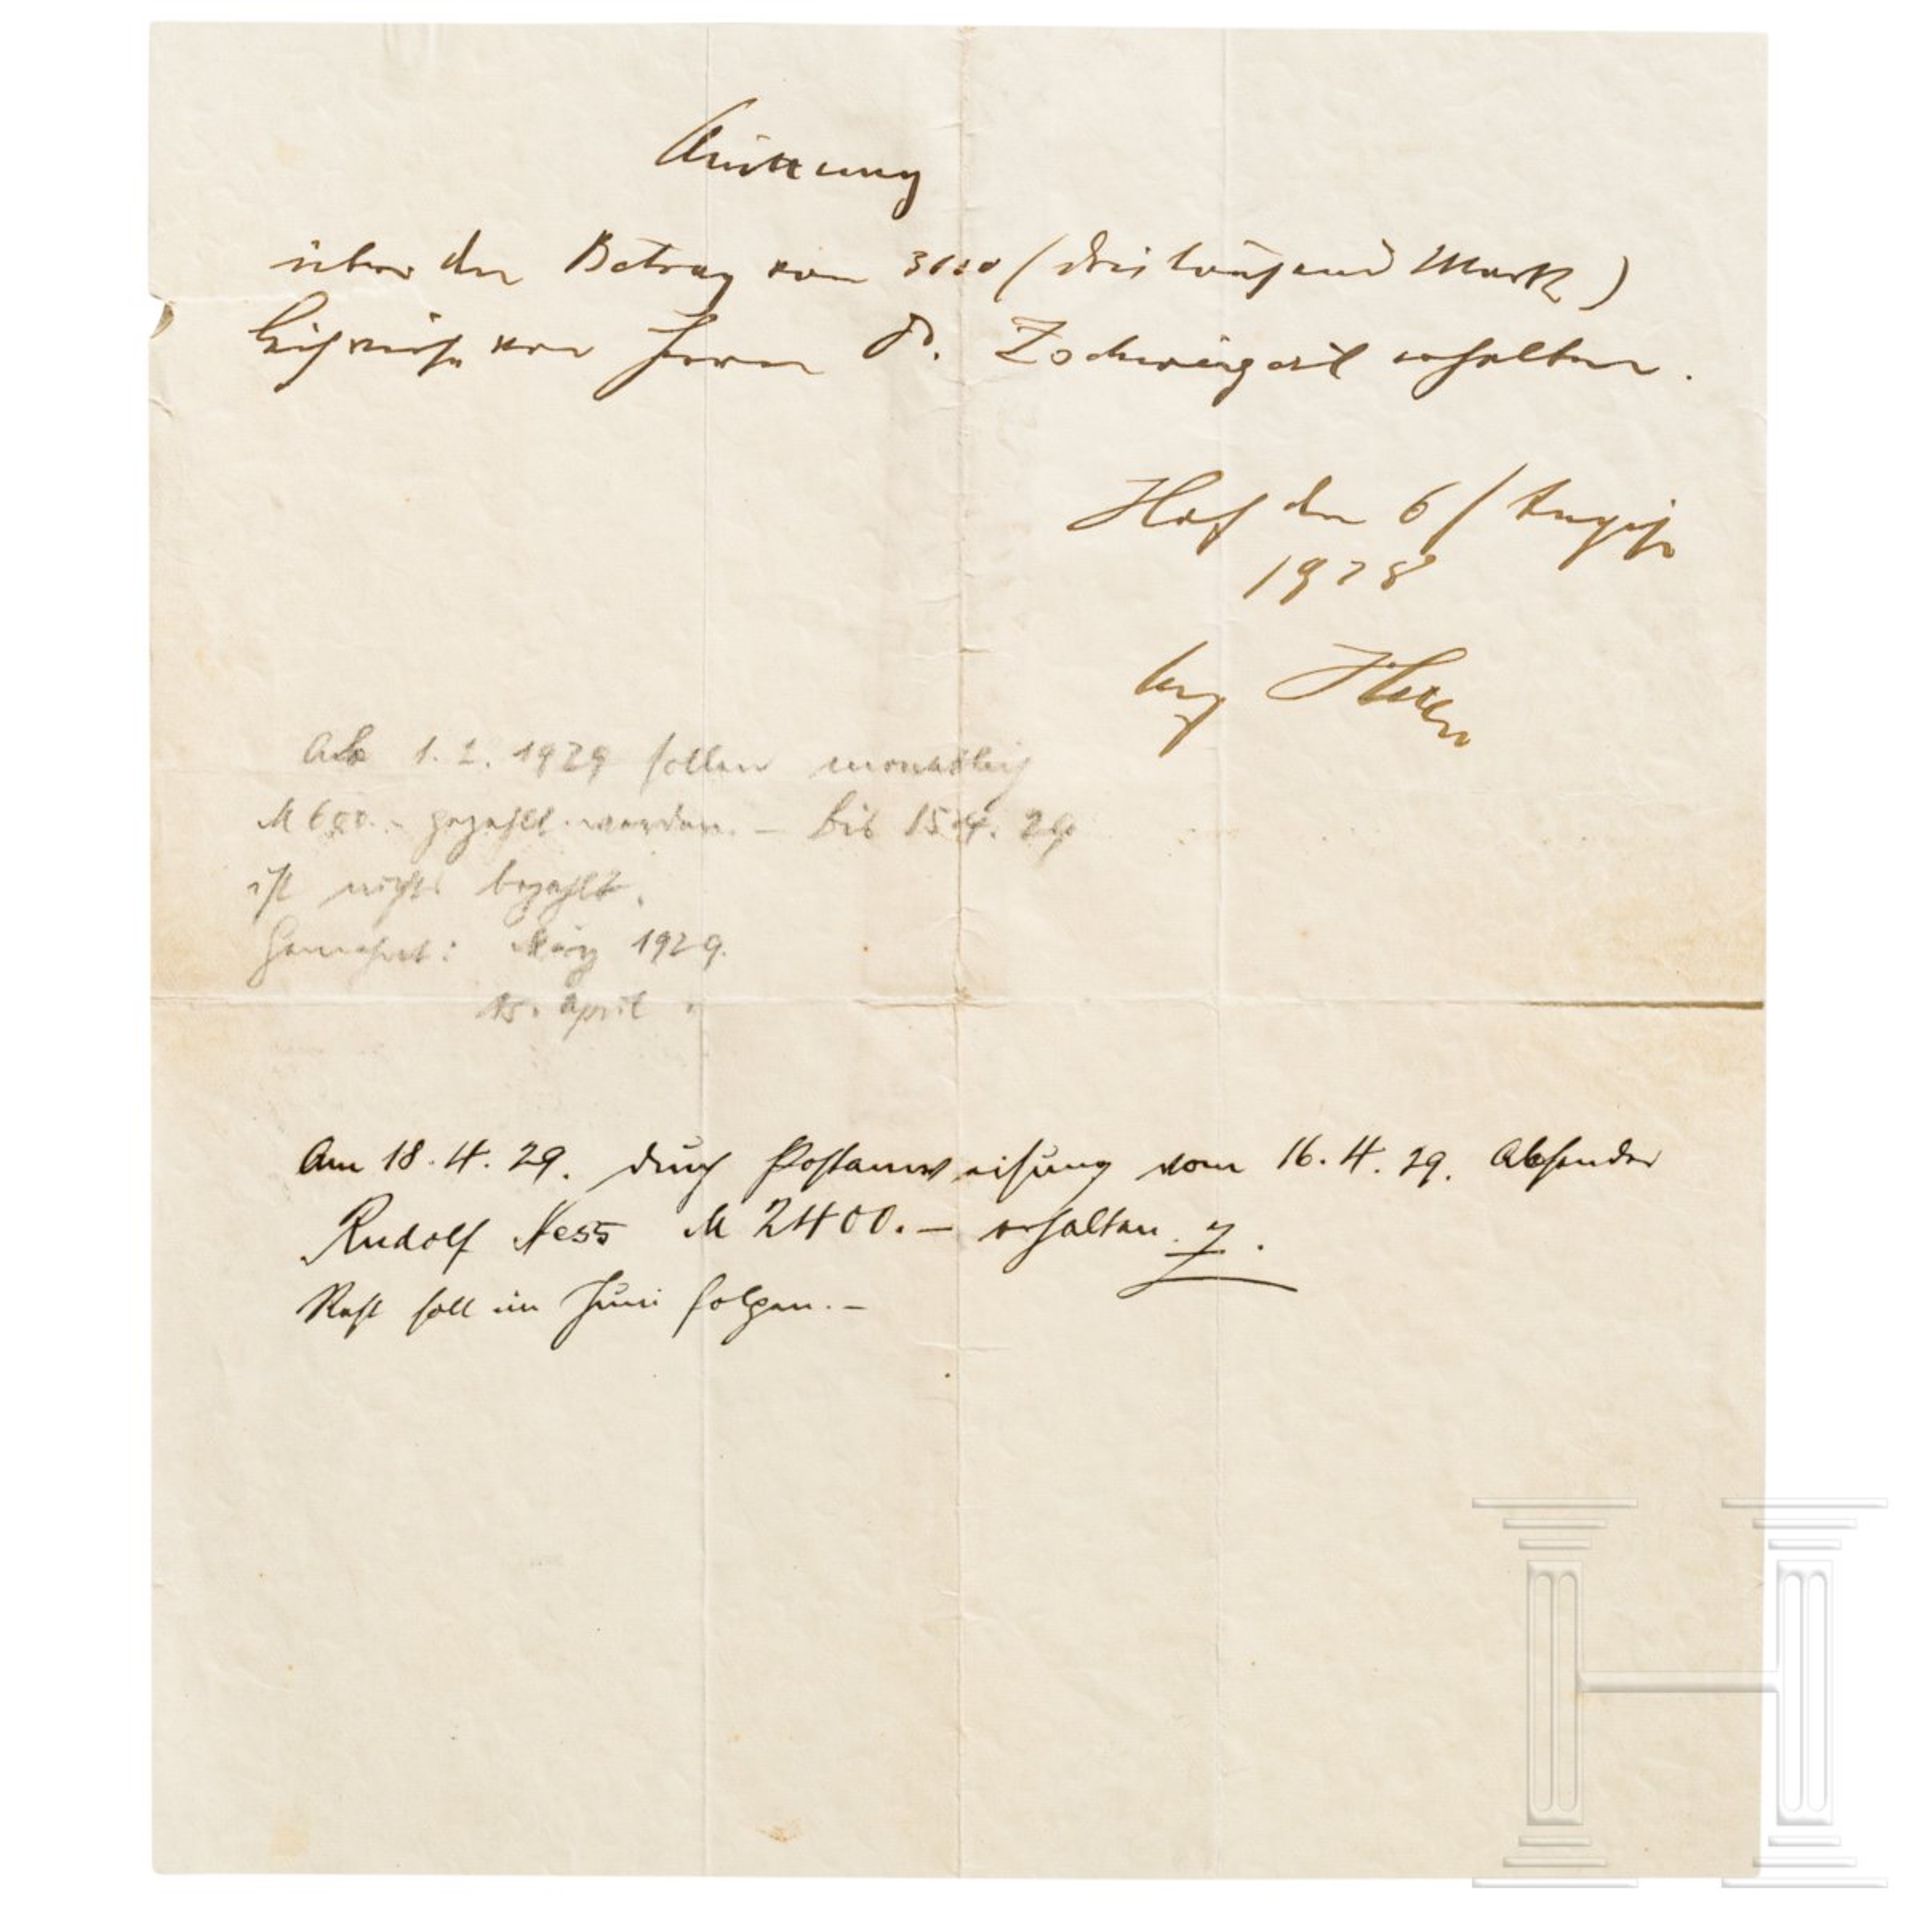 Quittung
über den Betrag von 3000 (dreitausend Mark)
leihweise von Herrn D. Zschweigert erhalten.
Hof den 6/August
1928
Ab 1.2.1929 sollen monatlich
M 600.- gezahlt werden. – Bis 15.4.29
ist nichts bezahlt.
Gemahnt: März 1929.
15. April "
Am 18.4.29. durch Postanweisung vom 16.4.29. Absender
Rudolf Hess M 2400.– erhalten. Z.
Rest soll im Juni folgen.–